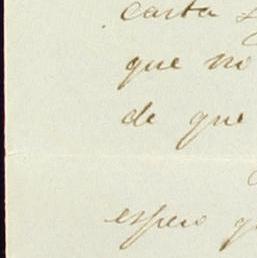 carta
que no
de que
espero